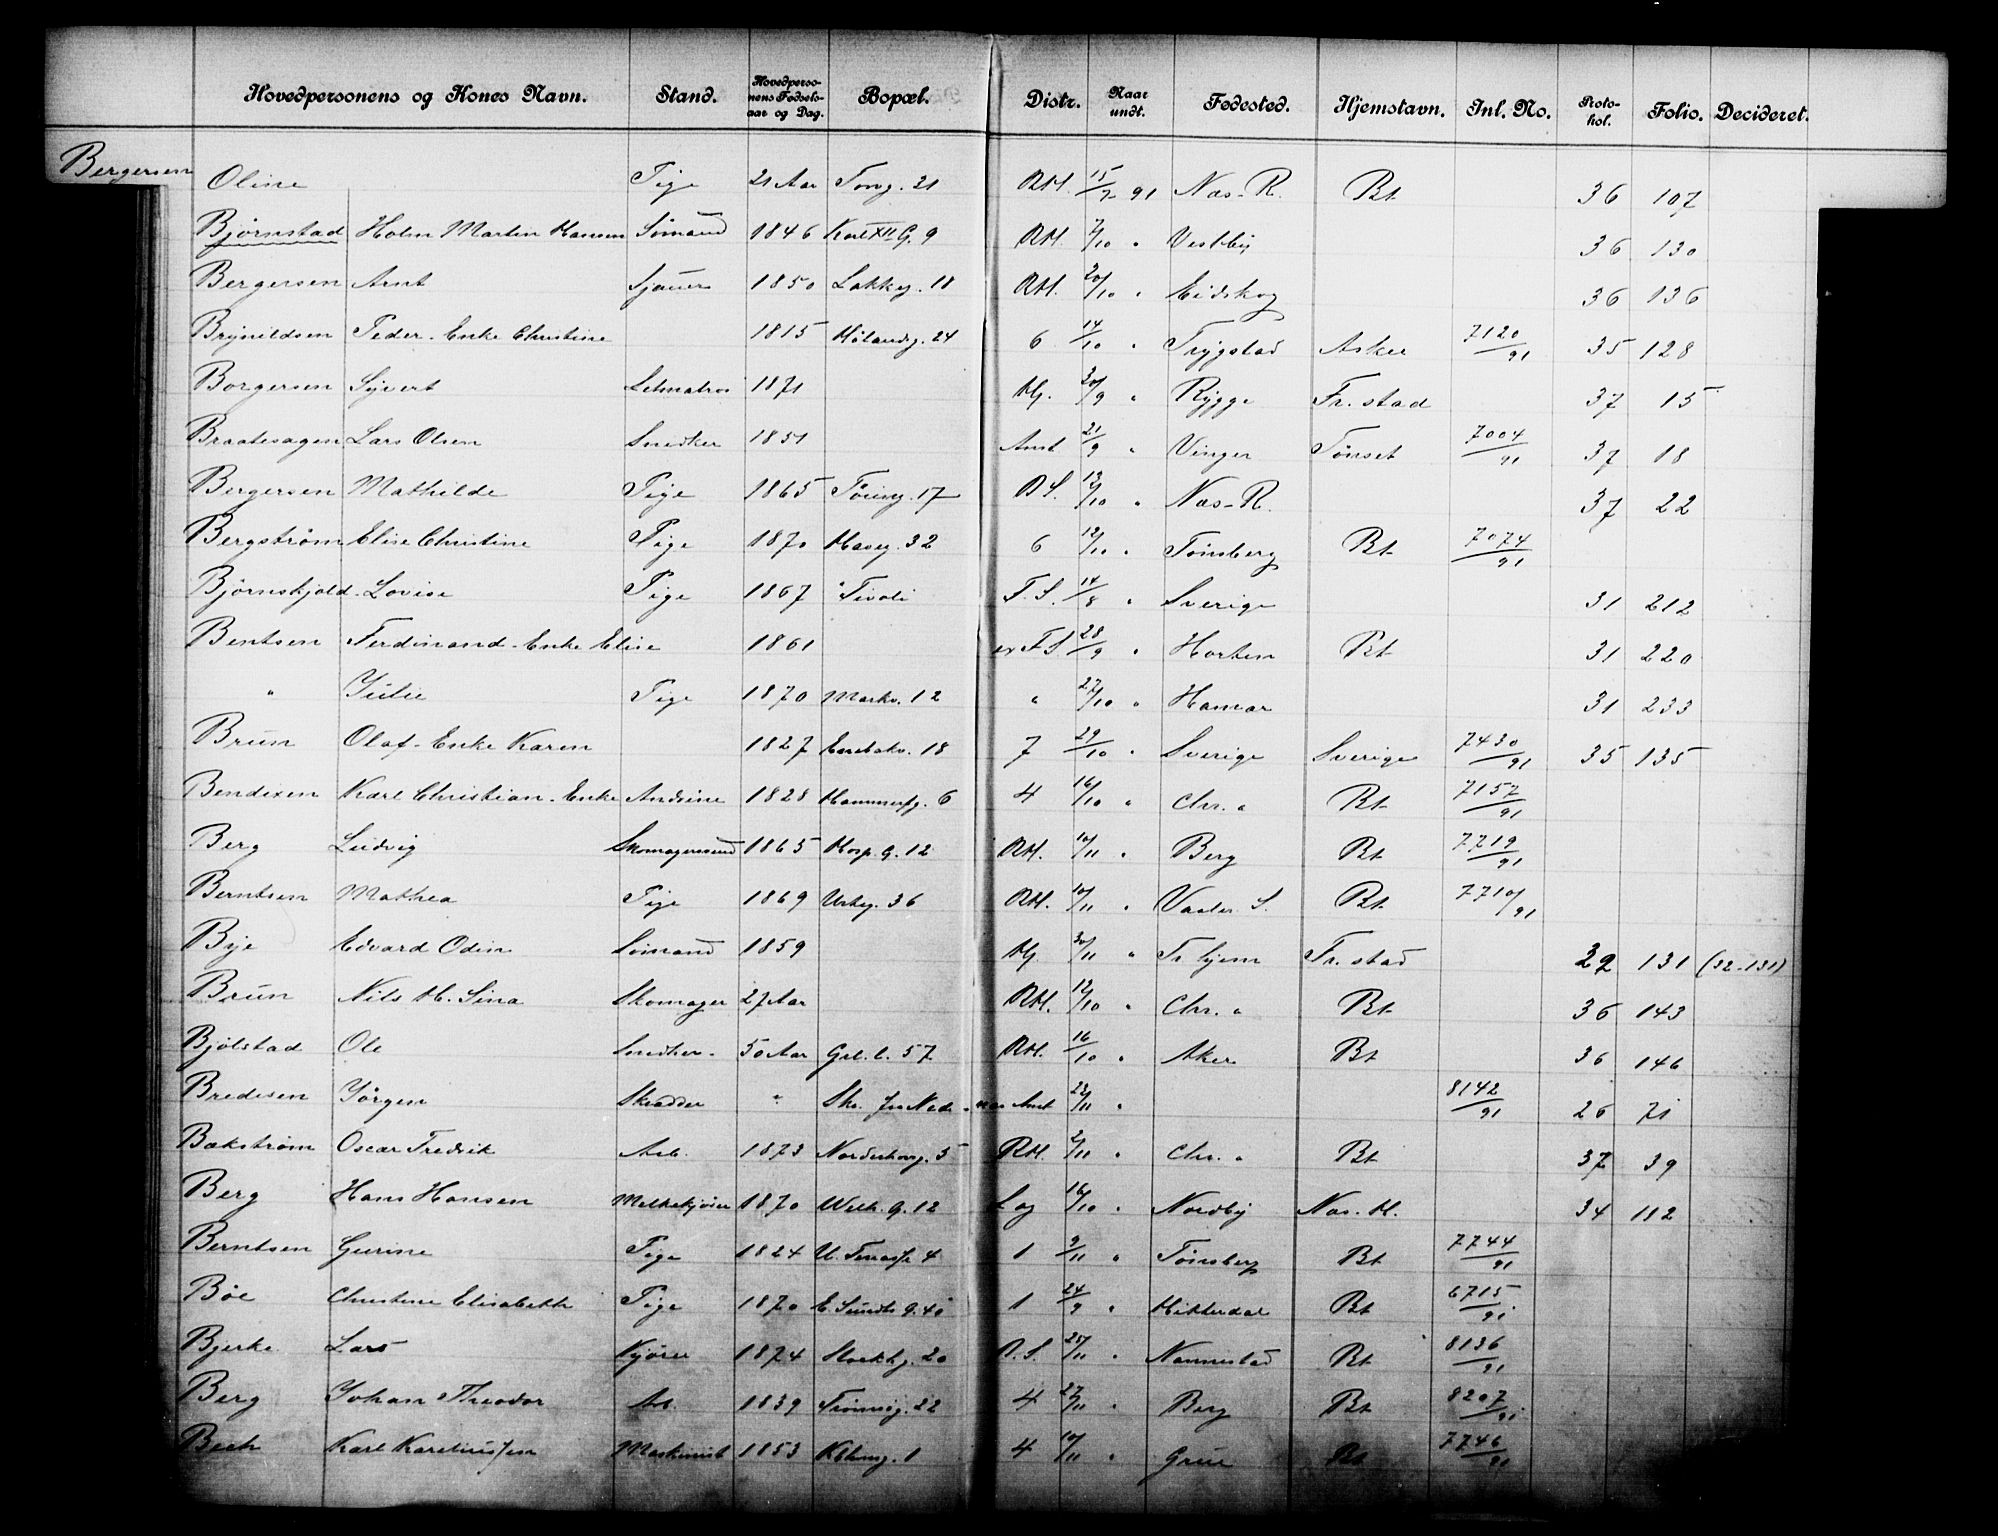 Hovedpersonens og Kones Navn. Stand. Hovedperso-nens Fødsels-aar og Dag. Bopæl. Distr. Naar undt. Fødested. Hjemstavn. Jnl. No. Proto-kol. Folio. Decideret.
Bergersen Oline Pige 21 Aar Torvg. 21 RH. 15/7 91 Næs-R. Bt 36 107
Bjørnstad Holm Martin Hansen Sømand 1846 Karl XII G. 9 RH. 7/10 " Vestby 36 130
Bergersen Arnt Sjauer 1850 Lakkeg. 18 RH. 20/10 " Eidskog 36 136
Brynildsen Peder - Enke Christine 1815 Hølandsg. 24 6 14/10 " Trygstad Asker 7120/91 35 128
Borgersen Syvert Letmatros 1871 Hj. 30/9 " Rygge Fr.stad 37 15
Braatesagen Lars Olsen Snedker 1851 Amt 21/9 " Vinger Tønset 7004/91 37 18
Bergersen Mathilde Pige 1865 17 D.S. 12/10 " Næs-R. 37 22
Bergstrøm Elise Christine Pige 1870 Haveg. 32 6 12/11 " Tønsberg Bt 7074/91
Bjørnskjold Lovise Pige 1867 "Tivoli F.S. 14/8 " Sverige 31 212
Bentsen Ferdinand - Enke Elise 1861 F.S. 28/9 " Horten Bt 31 220
" Julie Pige 1870 Markv. 12 " 27/10 " Hamar 31 233
Brun Olaf - Enke Karen 1827 Enebakv. 18 7 29/10 " Sverige Sverige 7430/91 35 135
Bendixen Karl Christian - Enke Andrine 1828 Hammerfg. 6 4 16/10 " Chr. a Bt 7157/91
Berg Ludvig Skomagersvend 1865 Hosp. G. 12 RH. 10/11 " Berg Bt 7719/91
Berntsen Mathea Pige 1869 Urteg. 36 RH. 10/11 " Vaaler. S. Bt 7710/91
Bye Edvard Odin Sømand 1859 Hj. 30/11 " Tr.hjem Fr.stad 32 131 (32-131)
Brun Nils H. Sina Skomager 27 Aar RH. 12/10 " Chr. a Bt 36 143
Bjølstad Ole Snedker. 50 Aar Grl. l. 57 RH. 16/10 " Aker Bt 36 146
Bredesen Jørgen Skrædder " Amt 22/11 " 8142/91 26 71
Bækstrøm Oscar Fredrik Arb. 1873 Norderhovg. 5 RH. 2/11 " Chr. a Bt 37 39
Berg Hans Hansen Melkekjører 1870 Welh. G. 12 Log 16/10 " Nordby Næs. H. 34 112
Berntsen Gurine Pige 1824 U. 4 1 9/11 " Tønsberg Bt 7744/91
Bøe Christine Elisabeth Pige 1870 E. Sundts G. 40 1 24/9 " Hitterdal Bt 6715/91
Bjerke Lars Kjører 1874 Storkbg. 20 D.S. 25/11 " Nannestad Bt 8136/91
Berg Johan Theodor Arb. 1839 22 4 27/11 " Berg Bt 8207/91
Bech Karl Kareliussen Maskinist 1853 1 4 10/11 " Grue Bt 7746/91